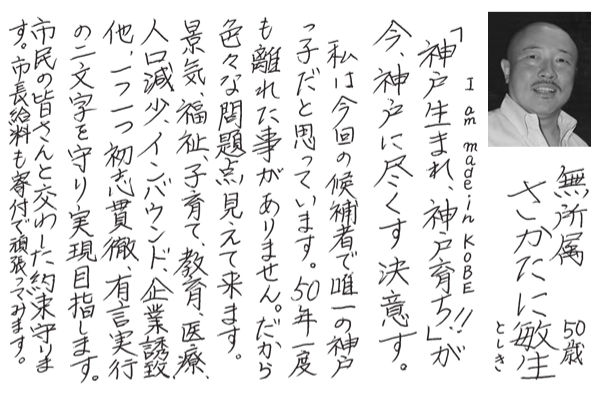 無所属
50歳
さかたに敏生
としき
I am made in KOBE
「神戸生まれ、神戸育ち」が
今、神戸に尽くす決意です。
私は今回の候補者で唯一の神戸
っ子だと思っています。50年一度
も離れた事がありません。だから
色々な問題点見えて来ます。
景気、福祉、子育て、教育、医療、
人口減少、インバウンド、企業誘致
他、一つ一つ初志貫徹、有言実行
の二文字を守り、実現目指します。
市民の皆さんと交わした約束守りま
す。市長給料も寄付で頑張ってみます。